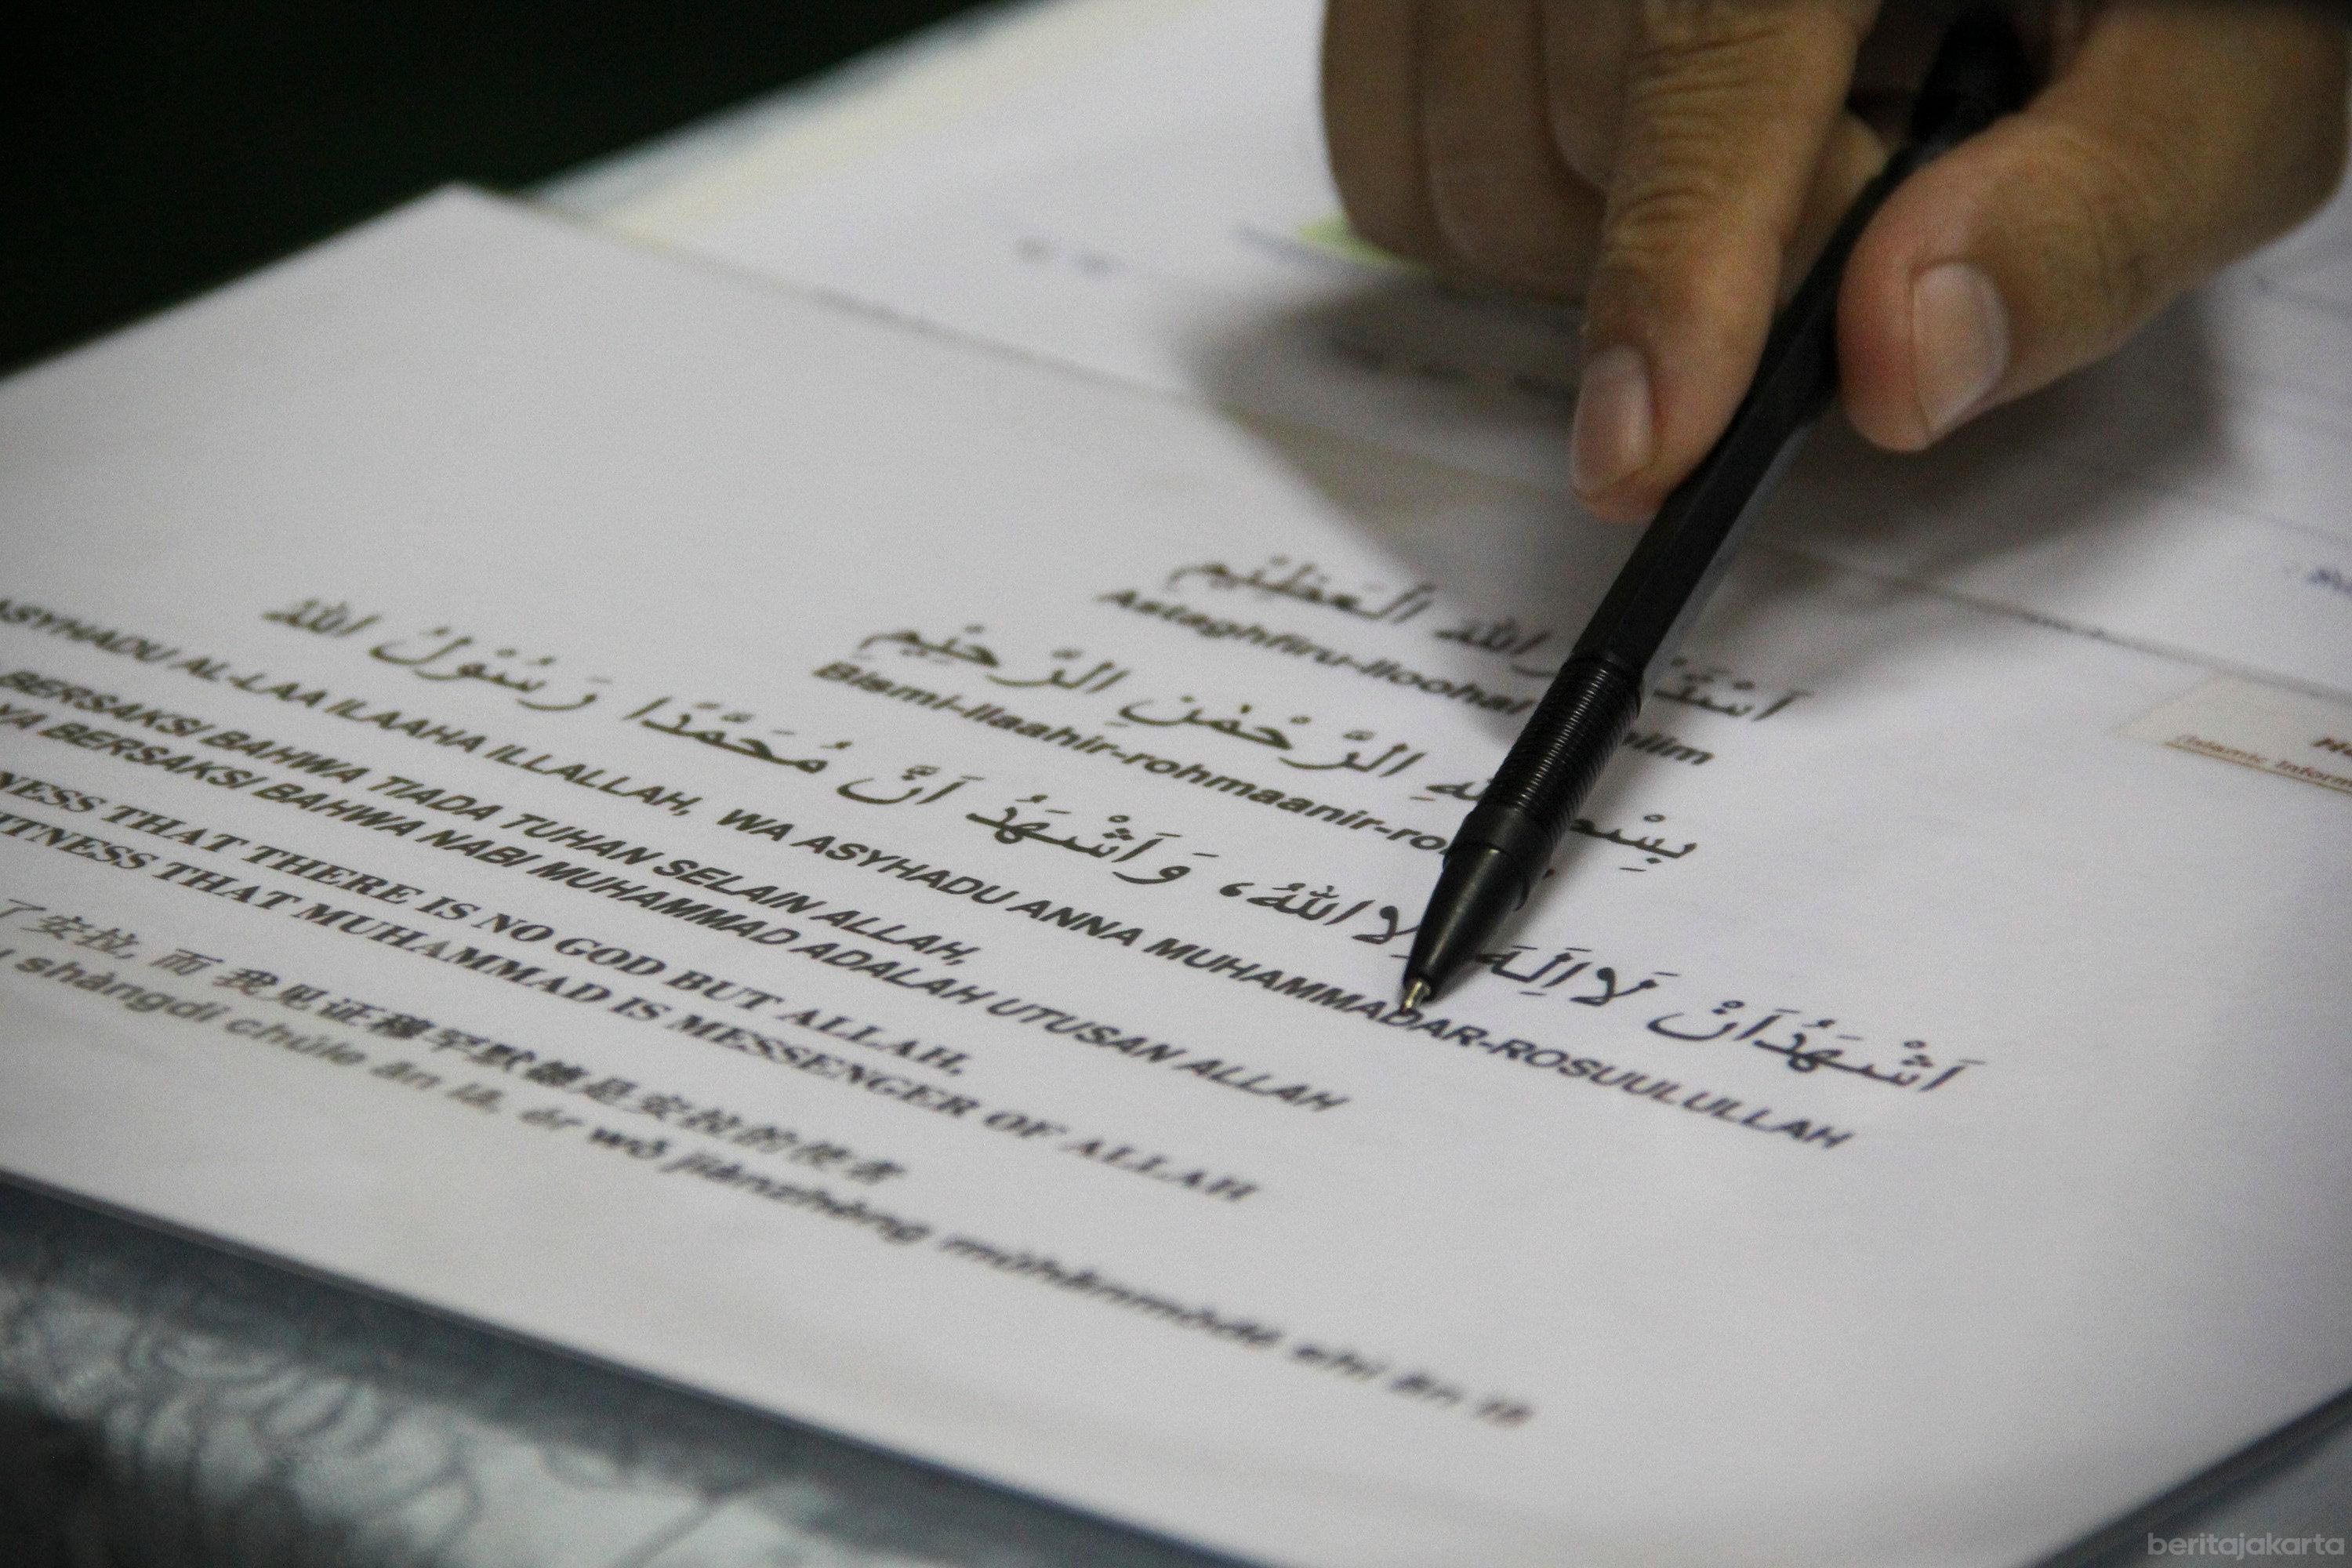 اَسْتَـ ـرُ اللهَ الْعَظِيْمِ
Astaghfiru-lloohal
بِسْـ ـهِ الرَّحْمٰنِ الرَّحِيْمِ
Bismi-llaahir-rohmaanir-ro
اَشْهَدُاَنْ لَااِلٰهَ ـلَّا اللهُ، وَاَشْهَدُ اَنَّ مُحَمَّدًا رَسُوْلُ اللهِ
ASYHADU AL-LAA ILAAHA ILLALLAH, WA ASYHADU ANNA MUHAMMADAR-ROSUULULLAH
BERSAKSI BAHWA TIADA TUHAN SELAIN ALLAH,
YA BERSAKSI BAHWA NABI MUHAMMAD ADALAH UTUSAN ALLAH
NESS THAT THERE IS NO GOD BUT ALLAH,
ITNESS THAT MUHAMMAD IS MESSENGER OF ALLAH
了安拉, 而 我见证穆罕默德是安拉的使者
shàngdì chúle ān lā, ér wǒ jiànzhèng mùhǎnmòdé shì ān lā
beritajakarta